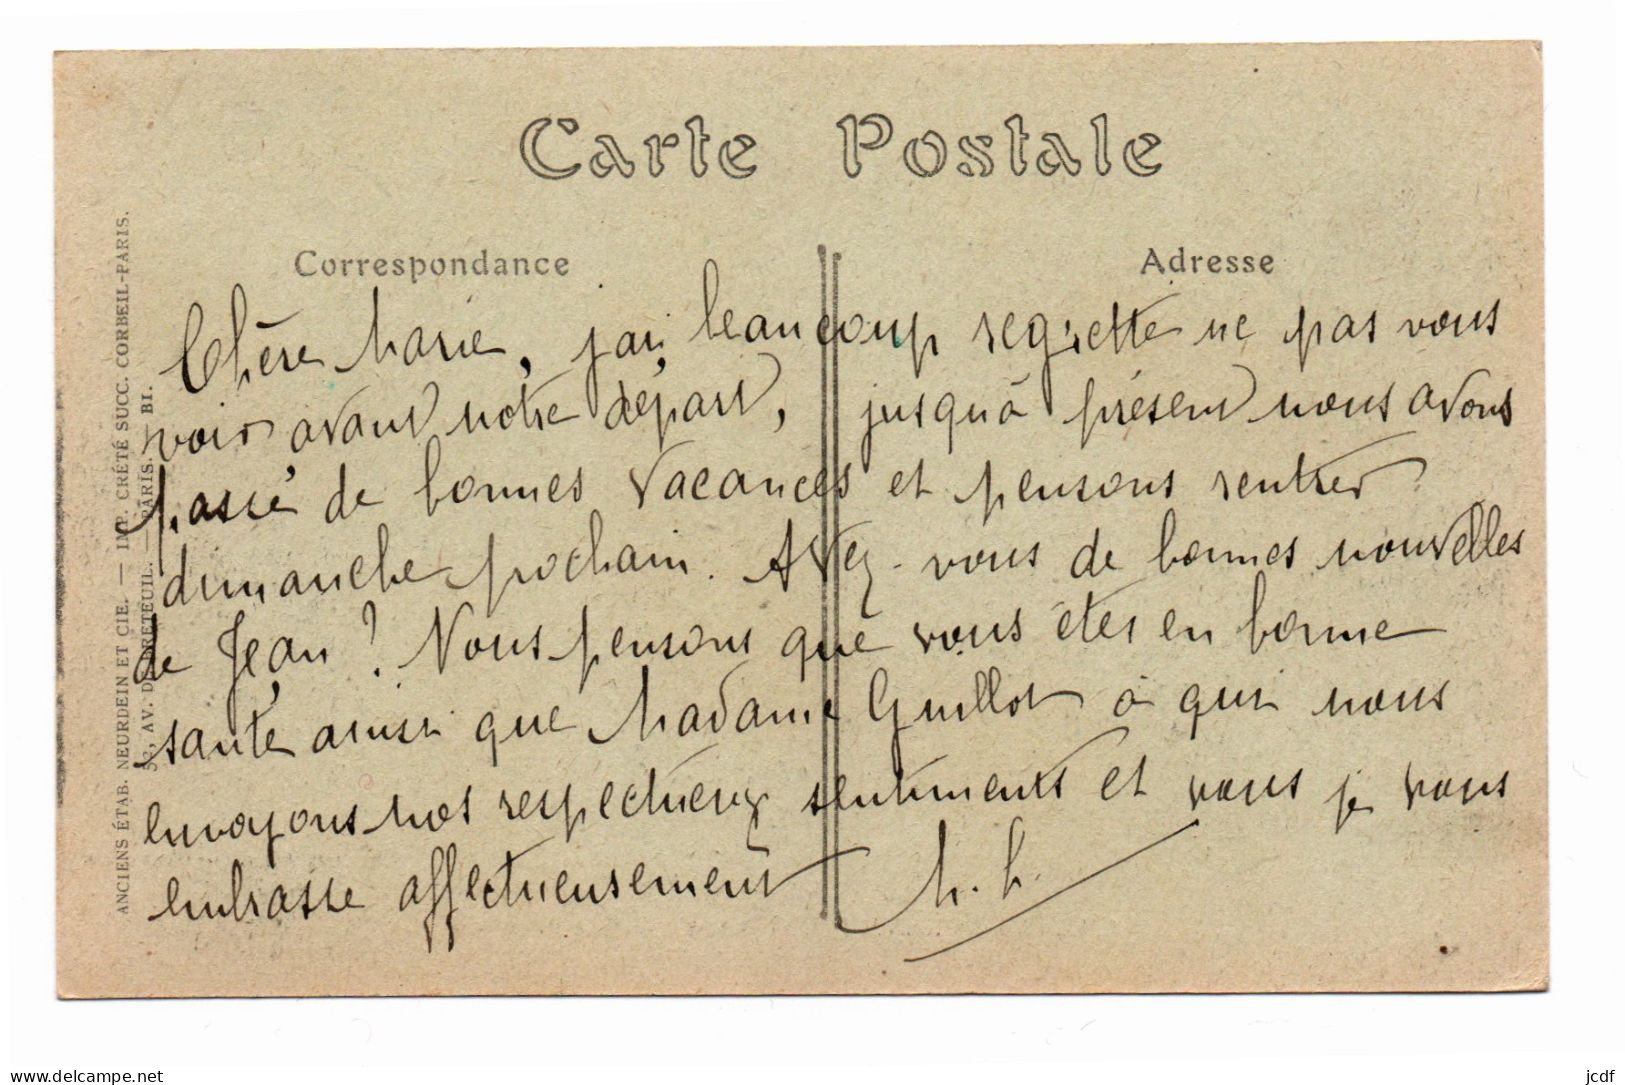 Carte Postale
Correspondance
Adresse
Chère Marie, j'ai beaucoup regretté ne pas vous
voir avant notre départ, jusqu'à présent nous avons
passé de bonnes vacances et pensons rentrer
dimanche prochain. Avez-vous de bonnes nouvelles
de Jean ? Nous pensons que vous êtes en bonne
santé ainsi que Madame Guillot à qui nous
envoyons nos respectueux sentiments et vous je vous
embrasse affectueusement
ANCIENS ÉTAB. NEURDEIN ET CIE. — IMP. CRÉTÉ SUCC. CORBEIL-PARIS.
52, AV. DE BRETEUIL. — PARIS. — BI.
www.delcampe.net
jcdf